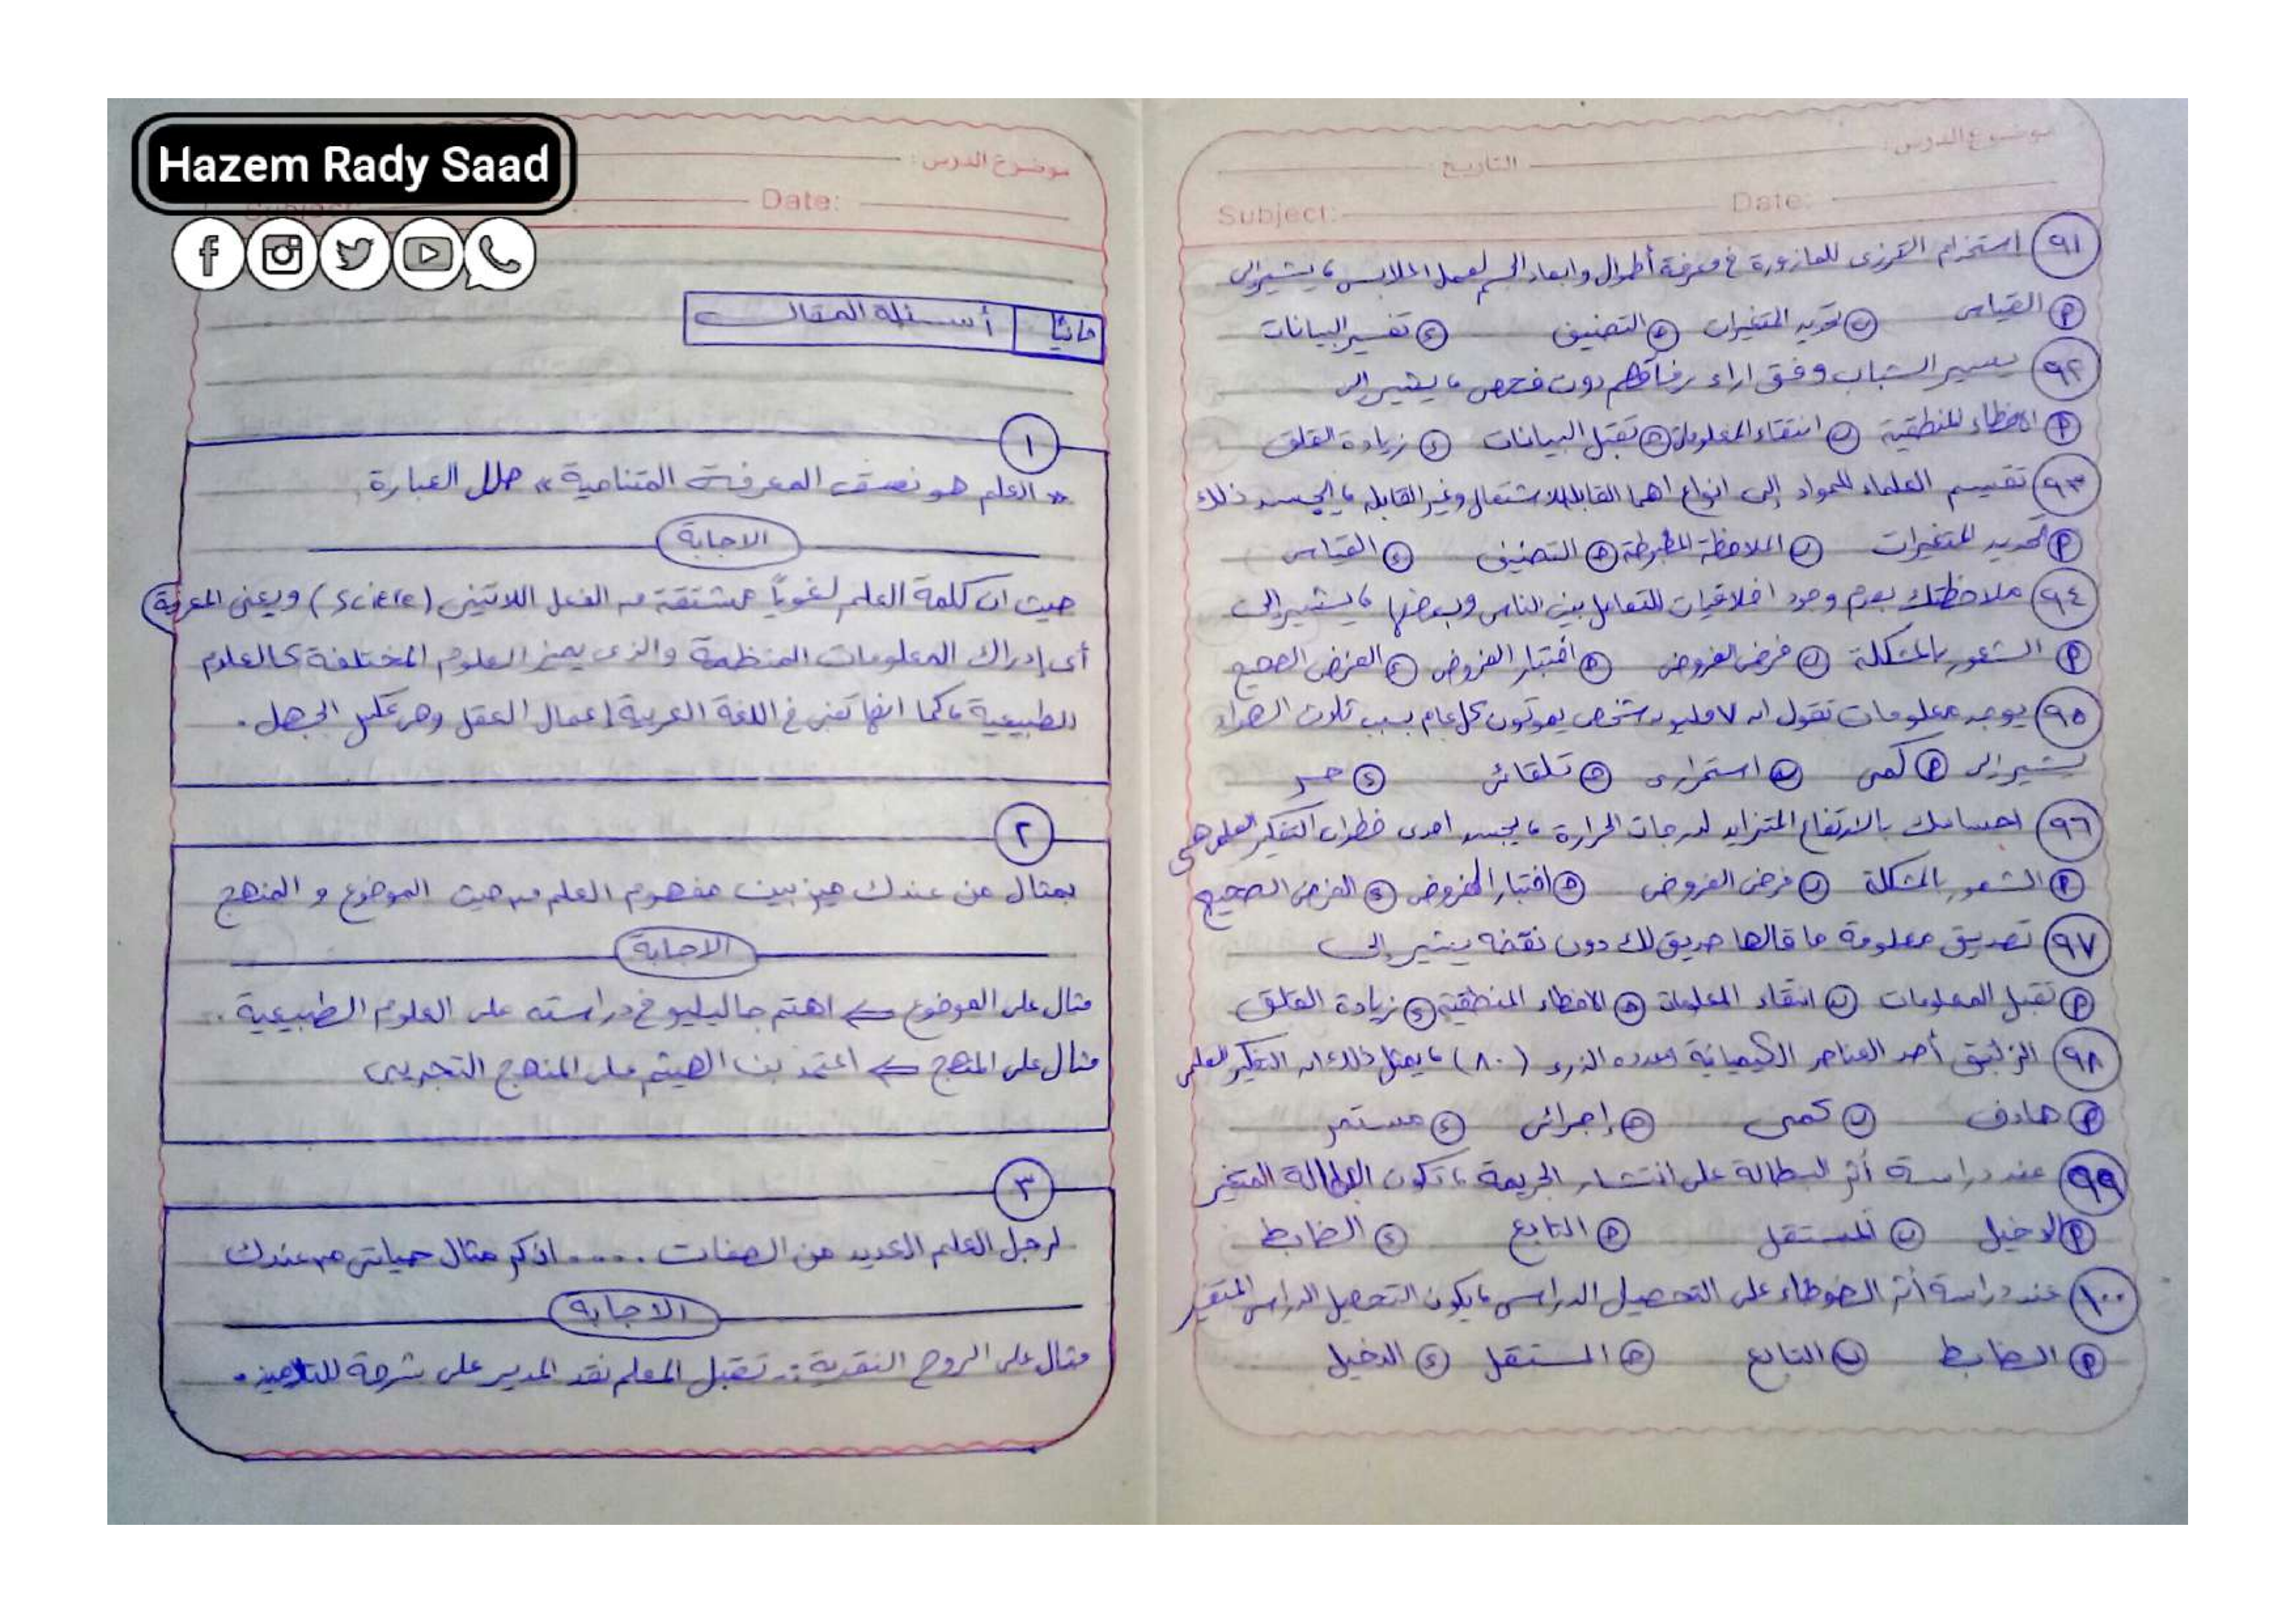 Hazem Rady Saad
موضوع الدرس:
التاريخ
Subject:
Date:
٩١ استخدام الترزى للمازورة فى معرفة أطوال وابعاد الجسم لعمل الملابس، يشير إلى
أ القياس ب تحديد المتغيرات ج التصنيف د تفسير البيانات
٩٢ يسير الشباب وفق اراء رفاقهم دون فحص، يشير إلى
أ الاخطاء المنطقية ب انتقاء المعلومات ج تقبل البيانات د زيادة القلق
٩٣ تقسيم العلماء للمواد إلى انواع اهما القابلة للاشتعال وغير القابله، يجسد ذلك
أ تحديد المتغيرات ب الملاحظة المضبوطة ج التصنيف د القياس
٩٤ ملاحظتك بعدم وجود اخلاقيات للتعامل بين الناس وبعضها، يشير إلى
أ الشعور بالمشكلة ب فرض الفروض ج اختبار الفروض د الفرض الصحيح
٩٥ يوجد معلومات تقول ان ٧ مليون شخص يموتون كل عام بسبب تلوث الهواء
يشير إلى أ كمى ب استمرارى ج تلقائى د
٩٦ احساسك بالارتفاع المتزايد لدرجات الحرارة، يجسد احدى خطوات التفكير العلمى هى
أ الشعور بالمشكلة ب فرض الفروض ج اختبار الفروض د الفرض الصحيح
٩٧ تصديق معلومة ما قالها صديق لك دون نقضه يشير إلى
أ تقبل المعلومات ب انتقاء المعلومات ج الاخطاء المنطقية د زيادة القلق
٩٨ الزئبق أحد العناصر الكيميائية عدده الذرى (٨٠)، يمثل ذلك ان التفكير العلمى
أ هادف ب كمى ج إجرائى د مستمر
٩٩ عند دراسة أثر البطالة على انتشار الجريمة، تكون البطالة المتغير
أ الدخيل ب المستقل ج التابع د الضابط
١٠٠ عند دراسة أثر الضوضاء على التحصيل الدراسى، يكون التحصيل الدراسى المتغير
أ الضابط ب التابع ج المستقل د الدخيل
موضوع الدرس:
Date:
ثانياً أسئلة المقال
١
« العلم هو نسق المعرفة المتنامية » حلل العبارة
الاجابة
حيث ان كلمة العلم لغوياً مشتقة من الفعل اللاتينى (Sciere) ويعنى المعرفة
أى إدراك المعلومات المنظمة والذى يميز العلوم المختلفة كالعلوم
الطبيعية، كما انها تعنى فى اللغة العربية إعمال العقل وهى عكس الجهل.
٢
بمثال من عندك ميز بين مفهوم العلم من حيث الموضوع و المنهج
الاجابة
مثال على الموضوع ⇐ اهتم جاليليو فى دراسته على العلوم الطبيعية.
مثال على المنهج ⇐ اعتمد بن الهيثم على المنهج التجريبى
٣
لرجل العلم العديد من الصفات .... اذكر مثال حياتى من عندك
الاجابة
مثال على الروح النقدية :- تقبل المعلم نقد المدير على شرحة للتلاميذ.